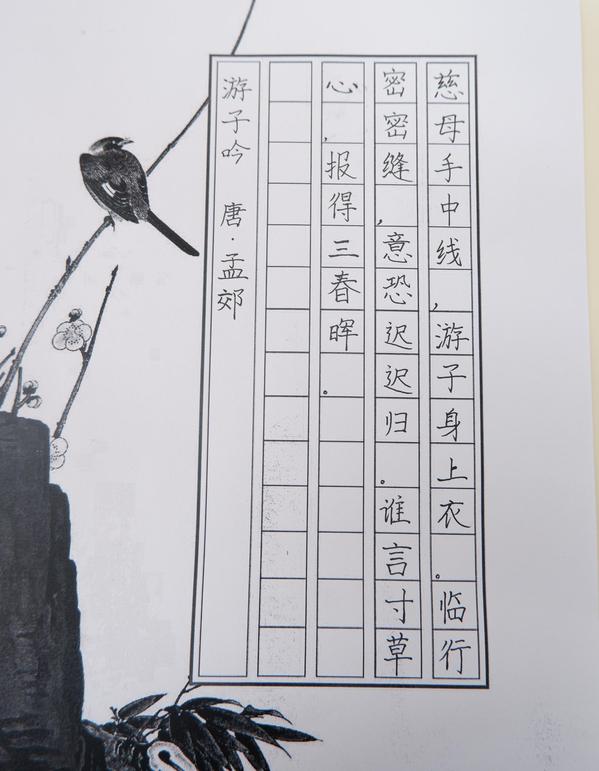 慈母手中线,游子身上衣。临行
密密缝,意恐迟迟归。谁言寸草
心,报得三春晖。
游子吟 唐·孟郊